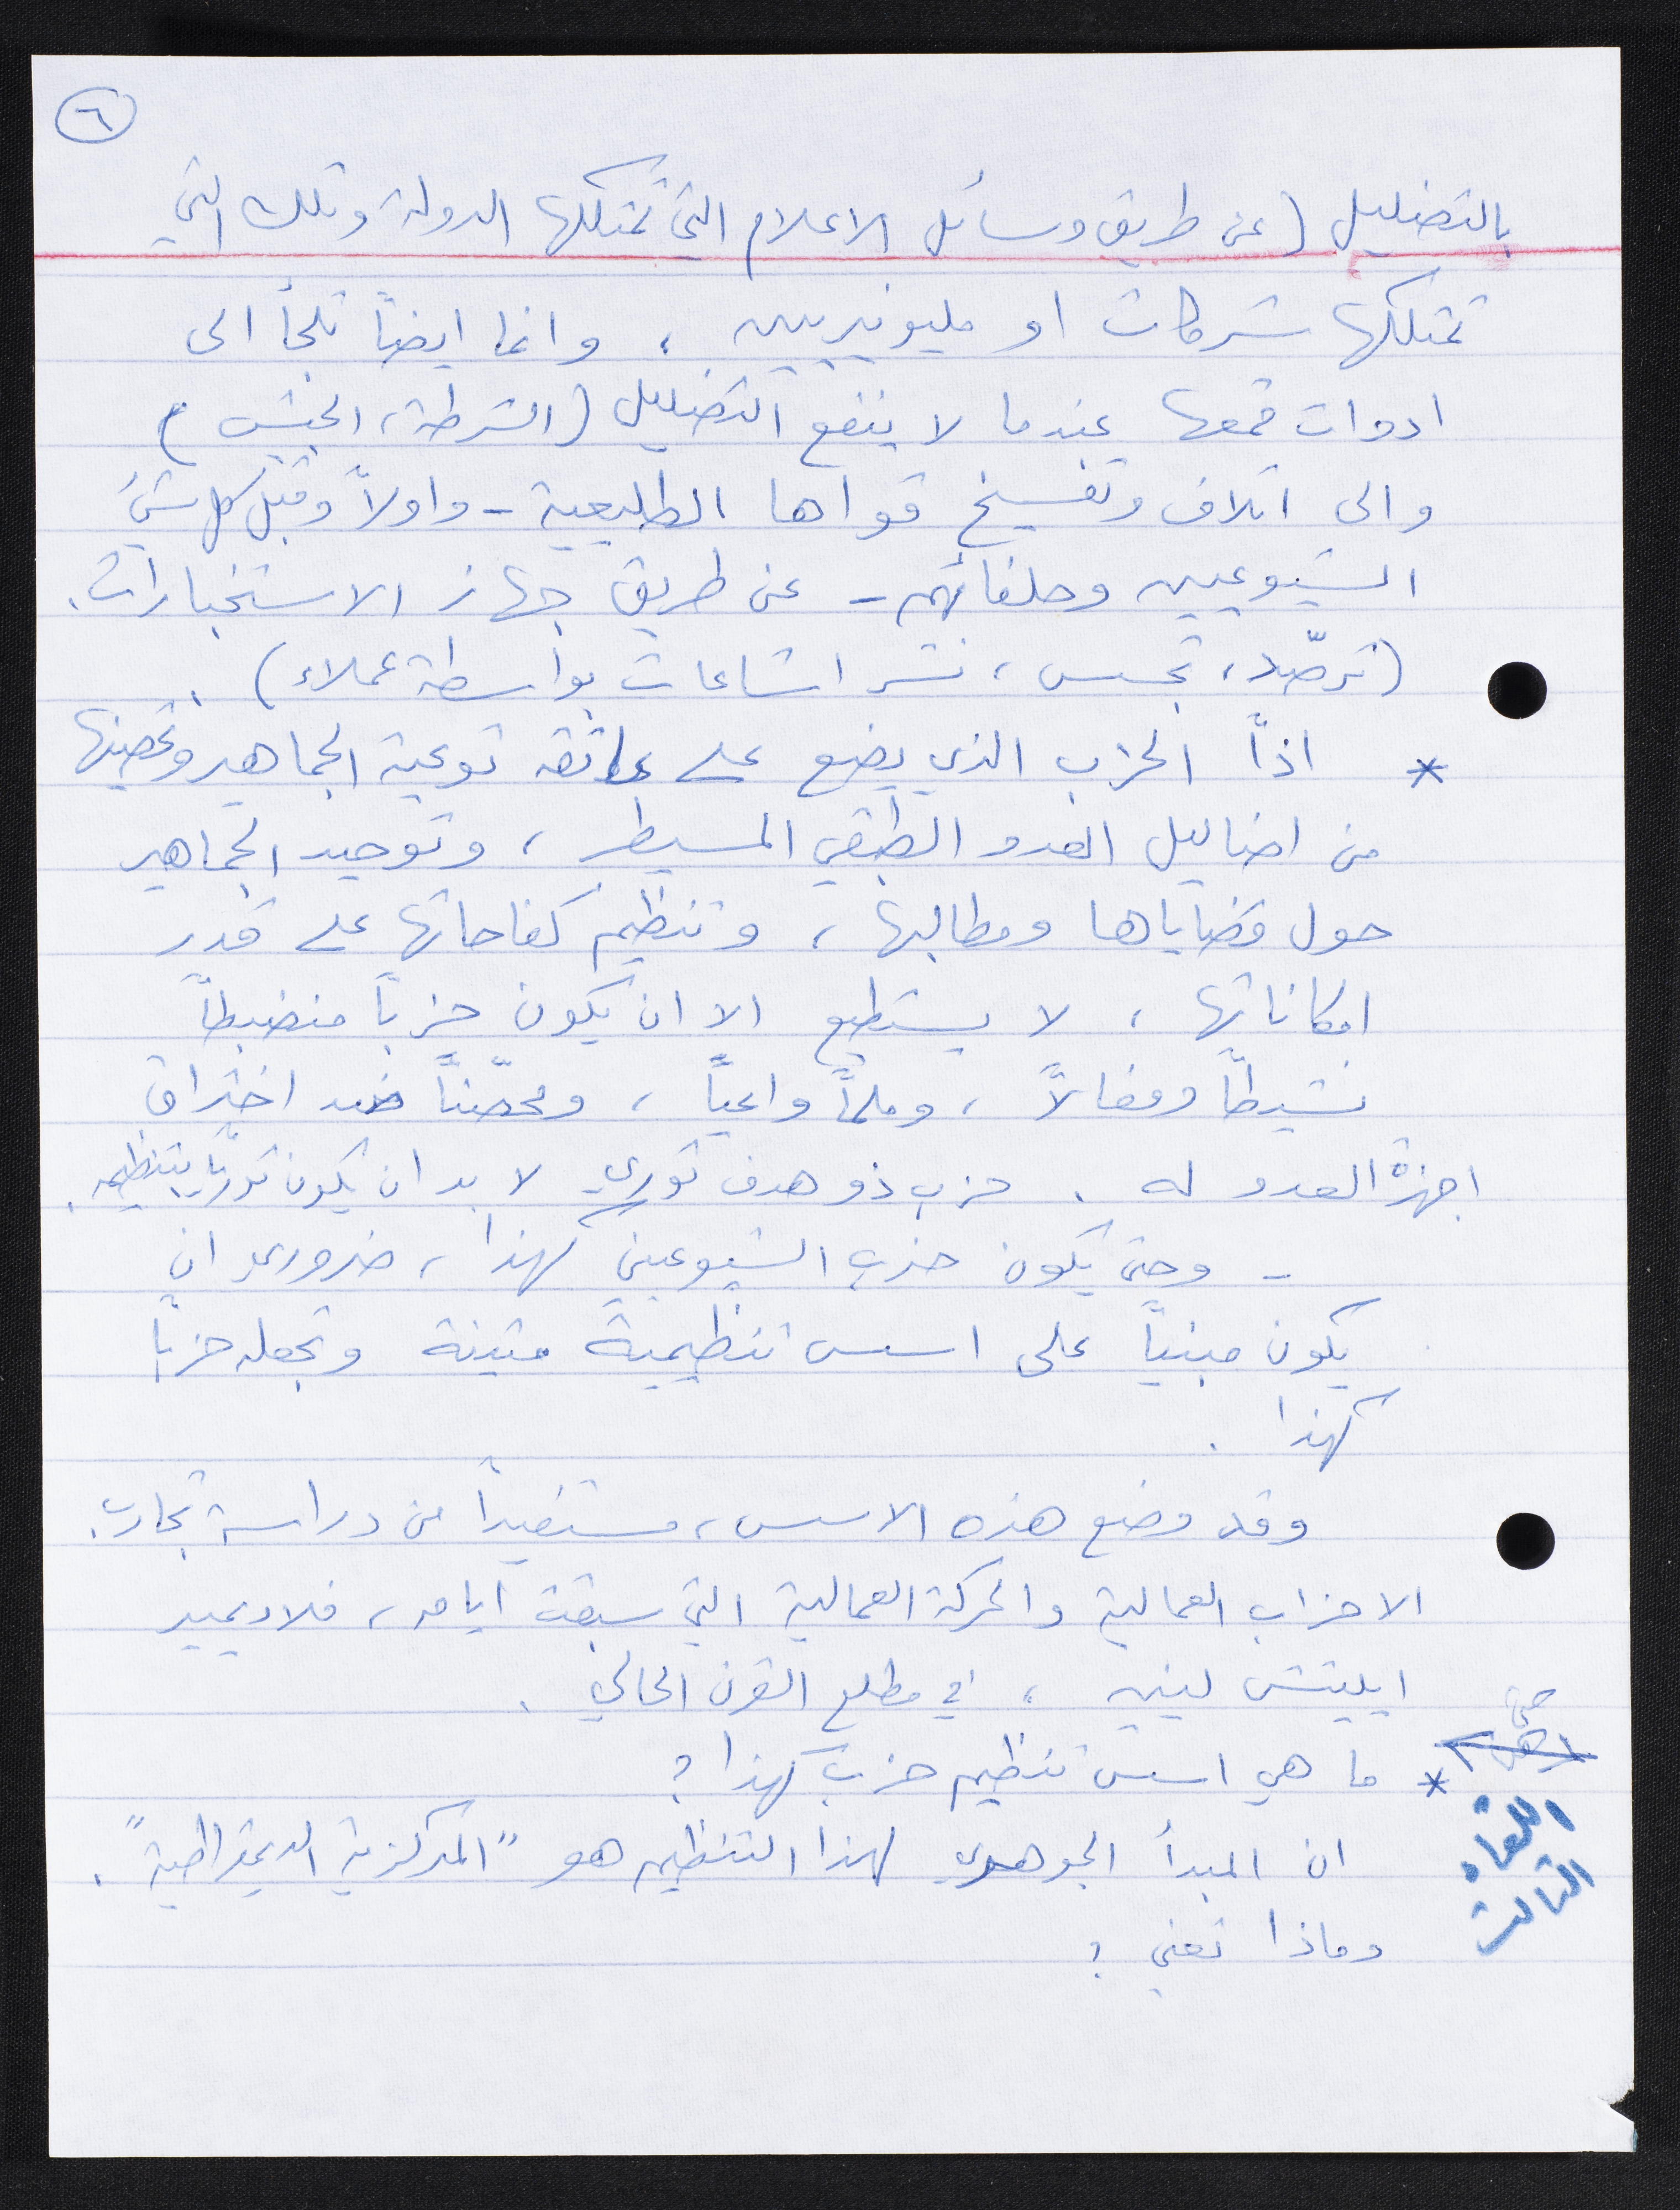 ٦
بالتضليل (عن طريق وسائل الاعلام التي تمتلكها الدولة وتلك التي
تمتلكها شركات او مليونيريين ، وانما ايضاً تلجأ الى
ادوات قمعها عندما لا ينفع التضليل (الشرطة، الجيش)
والى اتلاف وتفسيخ قواها الطليعية - واولاً وقبل كل شيء
الشيوعيين وحلفائهم - عن طريق جهاز الاستخبارات.
(ترصّد، تجسس، نشر اشاعات بواسطة عملاء) .
* اذاً الحزب الذي يضع على عاتقه توعية الجماهير وتحصينها
من اضاليل العدو الطبقي المسيطر ، وتوحيد الجماهير
حول قضاياها ومطالبها ، وتنظيم كفاحاتها على قدر
امكاناتها ، لا يستطيع الا ان يكون حزباً منضبطاً
نشيطاً وفعالاً ، وملماً واعياً ، ومحصّناً ضد اختراق
اجهزة العدو له . حزب ذو هدف ثوري لا بد ان يكون ثورياً بتنظيمه .
- وحتى يكون حزب الشيوعيين كهذا ، ضروري ان
يكون مبنياً على اسس تنظيمية متينة وتجعله حزباً
كهذا .
وقد وضع هذه الاسس ، مستفيداً من دراسة تجارب
الاحزاب العمالية والحركة العمالية التي سبقت ايامه ، فلاديمير
ايليتش لينين ، في مطلع القرن الحالي .
* ما هي اسس تنظيم حزب كهذا ؟
اللقاء
الثالث
ان المبدأ الجوهري لهذا التنظيم هو "المركزية الديمقراطية" .
وماذا تعني ؟